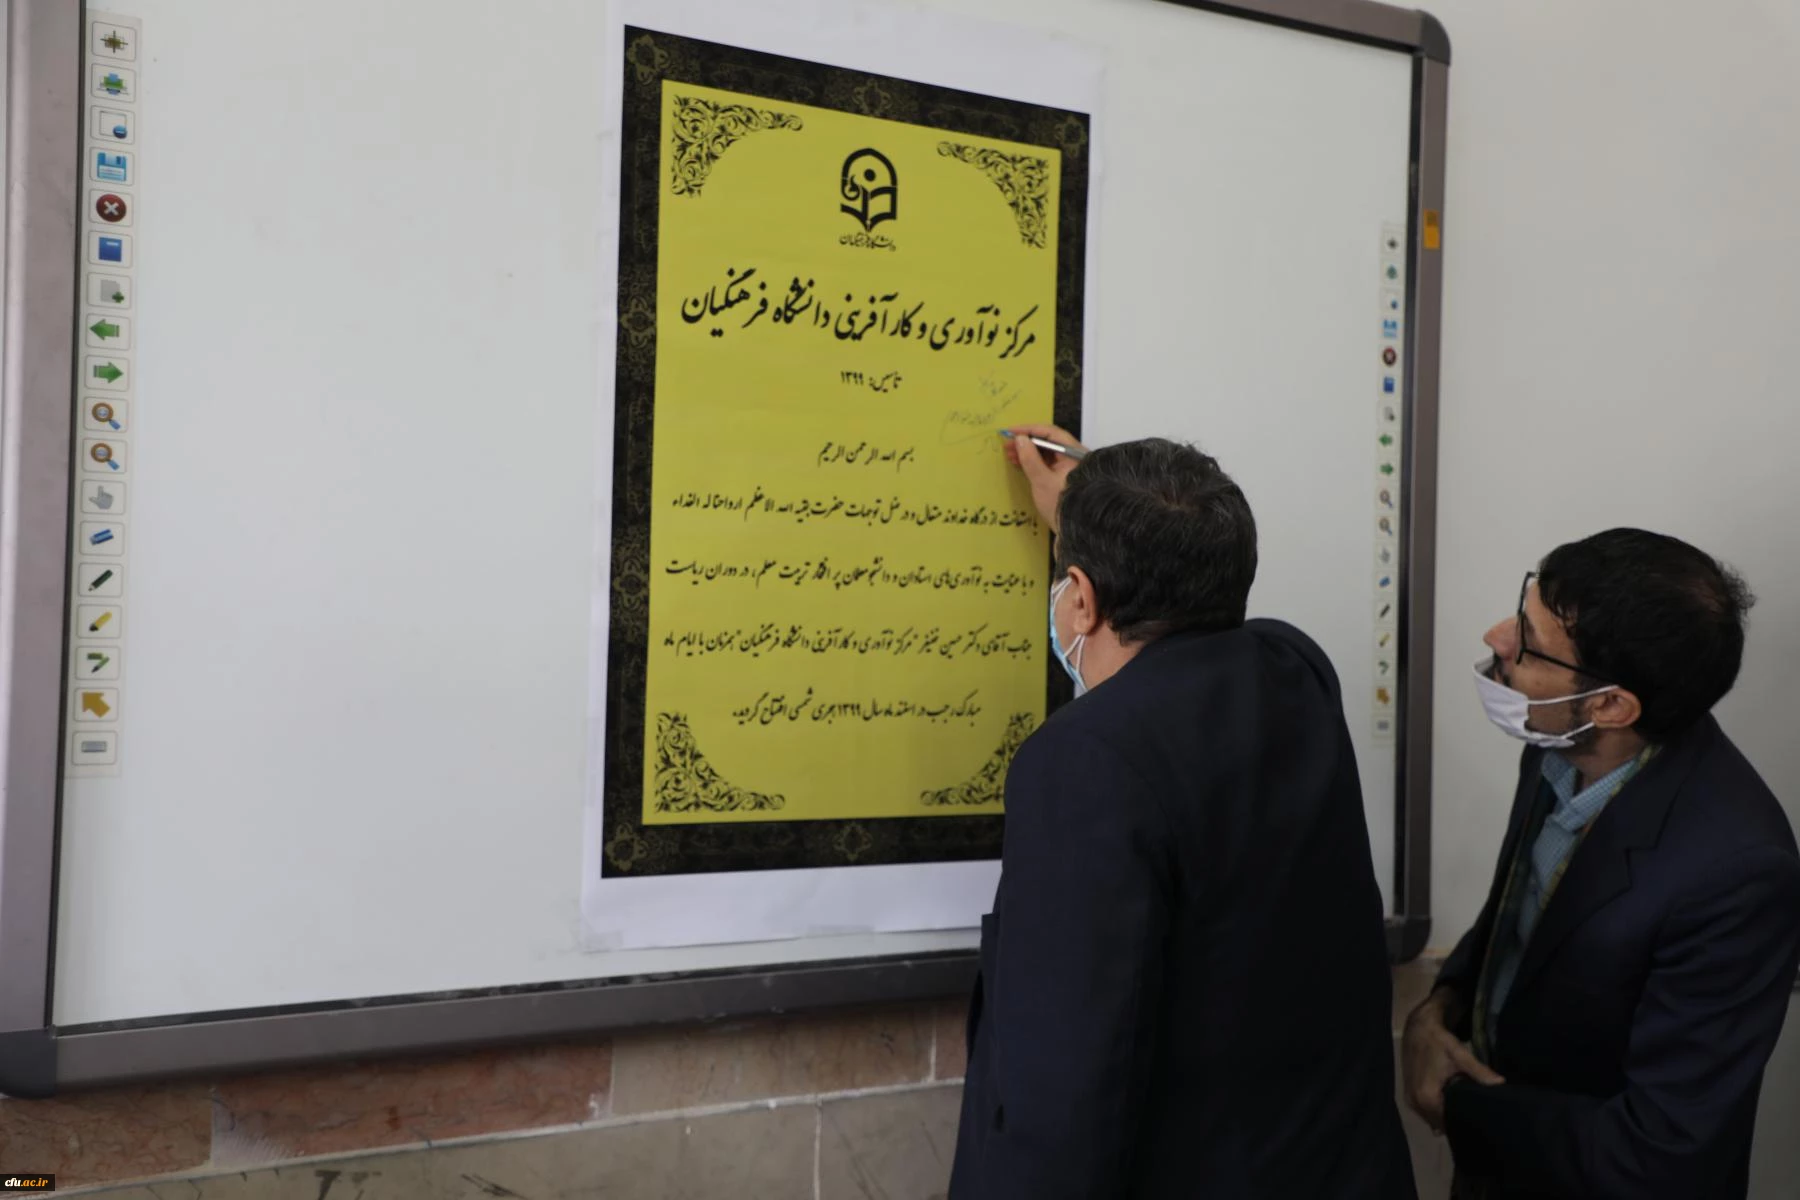 دانشگاه فرهنگیان
مرکز نوآوری و کارآفرینی دانشگاه فرهنگیان
تأسیس: ۱۳۹۹
بسم الله الرحمن الرحیم
با استعانت از درگاه خداوند متعال و در ظل توجهات حضرت بقیه الله الاعظم ارواحنا له الفداء
و با عنایت به نوآوری‌های استادان و دانشجو معلمان پر افتخار تربیت معلم، در دوران ریاست
جناب آقای دکتر حسین خنیفر "مرکز نوآوری و کارآفرینی دانشگاه فرهنگیان" همزمان با ایام ماه
مبارک رجب در اسفند ماه سال ۱۳۹۹ هجری شمسی افتتاح گردید.
cfu.ac.ir